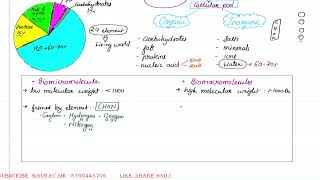 Carbohydrates
Cellular pool
Protein
H₂O → 60-70%
24 element
Living world
Organic
Inorganic
- Carbohydrates
- fat
- protein
- nucleic acid
- Salts
- minerals
- ions
- Water → 60-70%
• Biomicromolecule
→ low molecular weight - < 1000
→ formed by element : CHON
- Carbon - Hydrogen - Oxygen
- Nitrogen
• Biomacromolecule
→ high molecular weight :
SUBSCRIBE GAURAV SIR - LIKE, SHARE AND